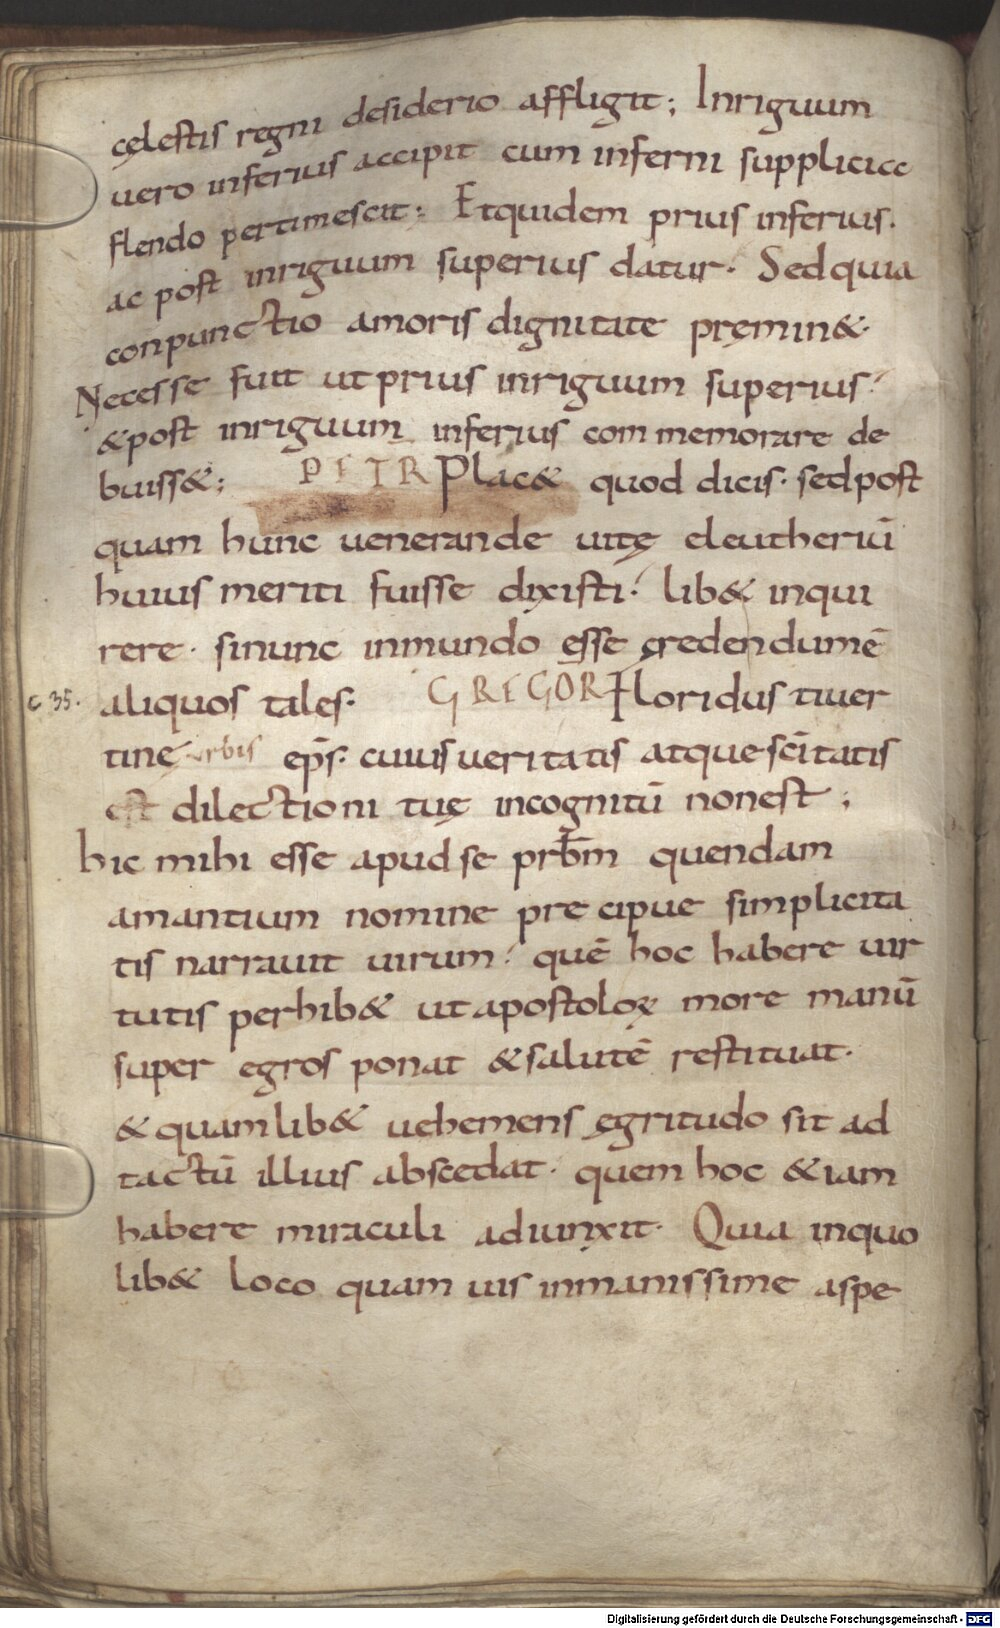 cęlestis regni desiderio affligit; Inriguum
uero inferius accipit cum inferni supplicicc
flendo pertimescit; Etquidem prius inferius.
ac post inriguum superius datur. Sedquia
conpunctio amoris dignitate pręmin&.
Necesse fuit utprius inriguum superius.
&post inriguum inferius commemorare de
buiss&; PETR Plac& quod dicis. sedpost
quam hunc uenerande uitę eleutheriū
huius meriti fuisse dixisti. lib& inqui
rere. sinunc inmundo esse credendumē
c 35. aliquos tales. GREGOR Floridus tiuer
tine urbis ep̄s. cuius ueritatis atque sc̄itatis
est dilectioni tuę incognitū nonest;
hic mihi esse apudse prb̄m quendam
amantium nomine precipue simplicita
tis narrauit uirum. quē hoc habere uir
tutis perhib& ut apostoloꝝ more manū
super egros ponat &salutē restituat.
&quamlib& uehemens ęgritudo sit ad
tactū illius abscedat. quem hoc &iam
habere miraculi adiunxit. Quia inquo
lib& loco quam uis inmanissime aspe
Digitalisierung gefördert durch die Deutsche Forschungsgemeinschaft - DFG